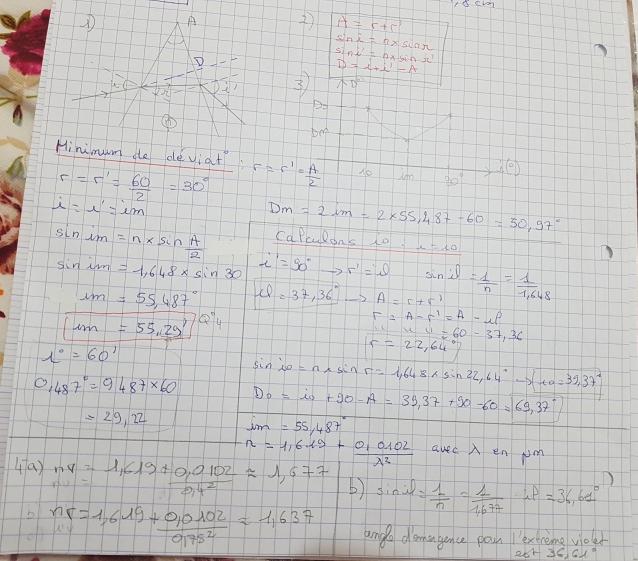 1,8 cm
1)
A
D
i
r
r'
i'
n
2)
A = r + r'
sin i = n x sin r
sin i' = n x sin r'
D = i + i' - A
3)
D°
D0
Dm
10
im
90°
i(°)
Minimum de déviat° : r = r' = A/2
r = r' = 60/2 = 30°
i = i' = im
Dm = 2 im = 2 x 55,487 - 60 = 50,97°
sin im = n x sin A/2
sin im = 1,648 x sin 30
im = 55,487°
im = 55,29' Q°4
1° = 60'
0,487° = 0,487 x 60
= 29,22
Calculons i0 : i = i0
i' = 90° → r' = il sin il = 1/n = 1/1,648
il = 37,36° → A = r + r'
r = A - r' = A - il
" " " = 60 - 37,36
r = 22,64°
sin i0 = n x sin r = 1,648 x sin 22,64° → i0 = 39,37°
D0 = i0 + 90 - A = 39,37 + 90 - 60 = 69,37°
im = 55,487°
n = 1,619 + 0,0102/λ² avec λ en µm
4) a) nv = 1,619 + 0,0102/0,4² ≈ 1,677
nr = 1,619 + 0,0102/0,75² ≈ 1,637
b) sin il = 1/n = 1/1,677 il = 36,61°
angle d'émergence pour l'extrême violet
est 36,61°